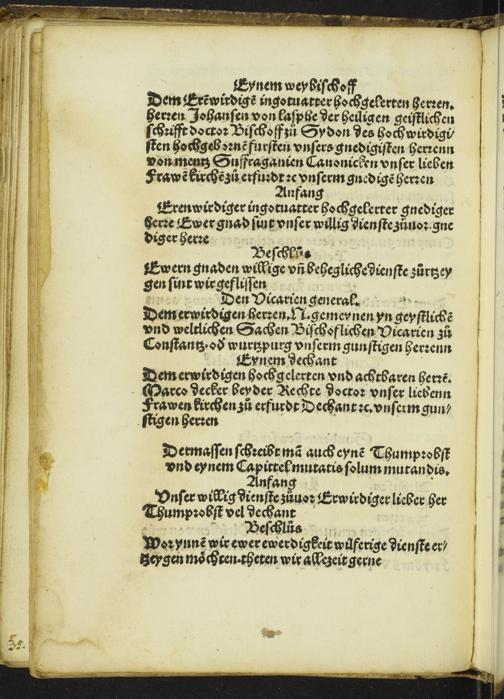 Eynem weybischoff
Dem Erẽwirdigẽ ingotuatter hochgelerten herren.
herren Johansen von lasphe der heiligen geistlichen
schrifft doctor Bischoff zů Sydon des hochwirdigi/
sten hochgebornẽ fursten vnsers gnedigisten herrenn
von mentz Suffraganien Canonicken vnser lieben
Frawẽ kirchẽ zů erfurdt ꝛc vnserm gnedigẽ herren
Anfang
Erenwirdiger ingotuatter hochgelerter gnediger
herre Ewer gnad sint vnser willig dienste zůuor. gne
diger herre
Beschlůs
Ewern gnaden willige vñ behegliche dienste zůrtzey
gen sint wir geflissen
Den Vicarien general.
Dem erwirdigen herren. N. gemeynen yn geystlichẽ
vnd weltlichen Sachen Bischoflichen Vicarien zů
Constantz. od wurtzpurg vnserm gunstigen herrenn
Eynem dechant
Dem erwirdigen hochgelerten vnd achtbaren herrẽ.
Marco decker beyder Rechte doctor vnser liebenn
Frawen kirchen zů erfurdt Dechant ꝛc. vnserm gun/
stigen herren
Dermassen schreibt mã auch eynẽ Thumprobst
vnd eynem Capittel mutatis solum mutandis.
Anfang
Vnser willig dienste zůuor Erwirdiger lieber her
Thumprobst vel dechant
Beschlůs
Worynnẽ wir ewer ewerdigkeit wilferige dienste er/
tzeygen mőchten. theten wir allezeit gerne
35.